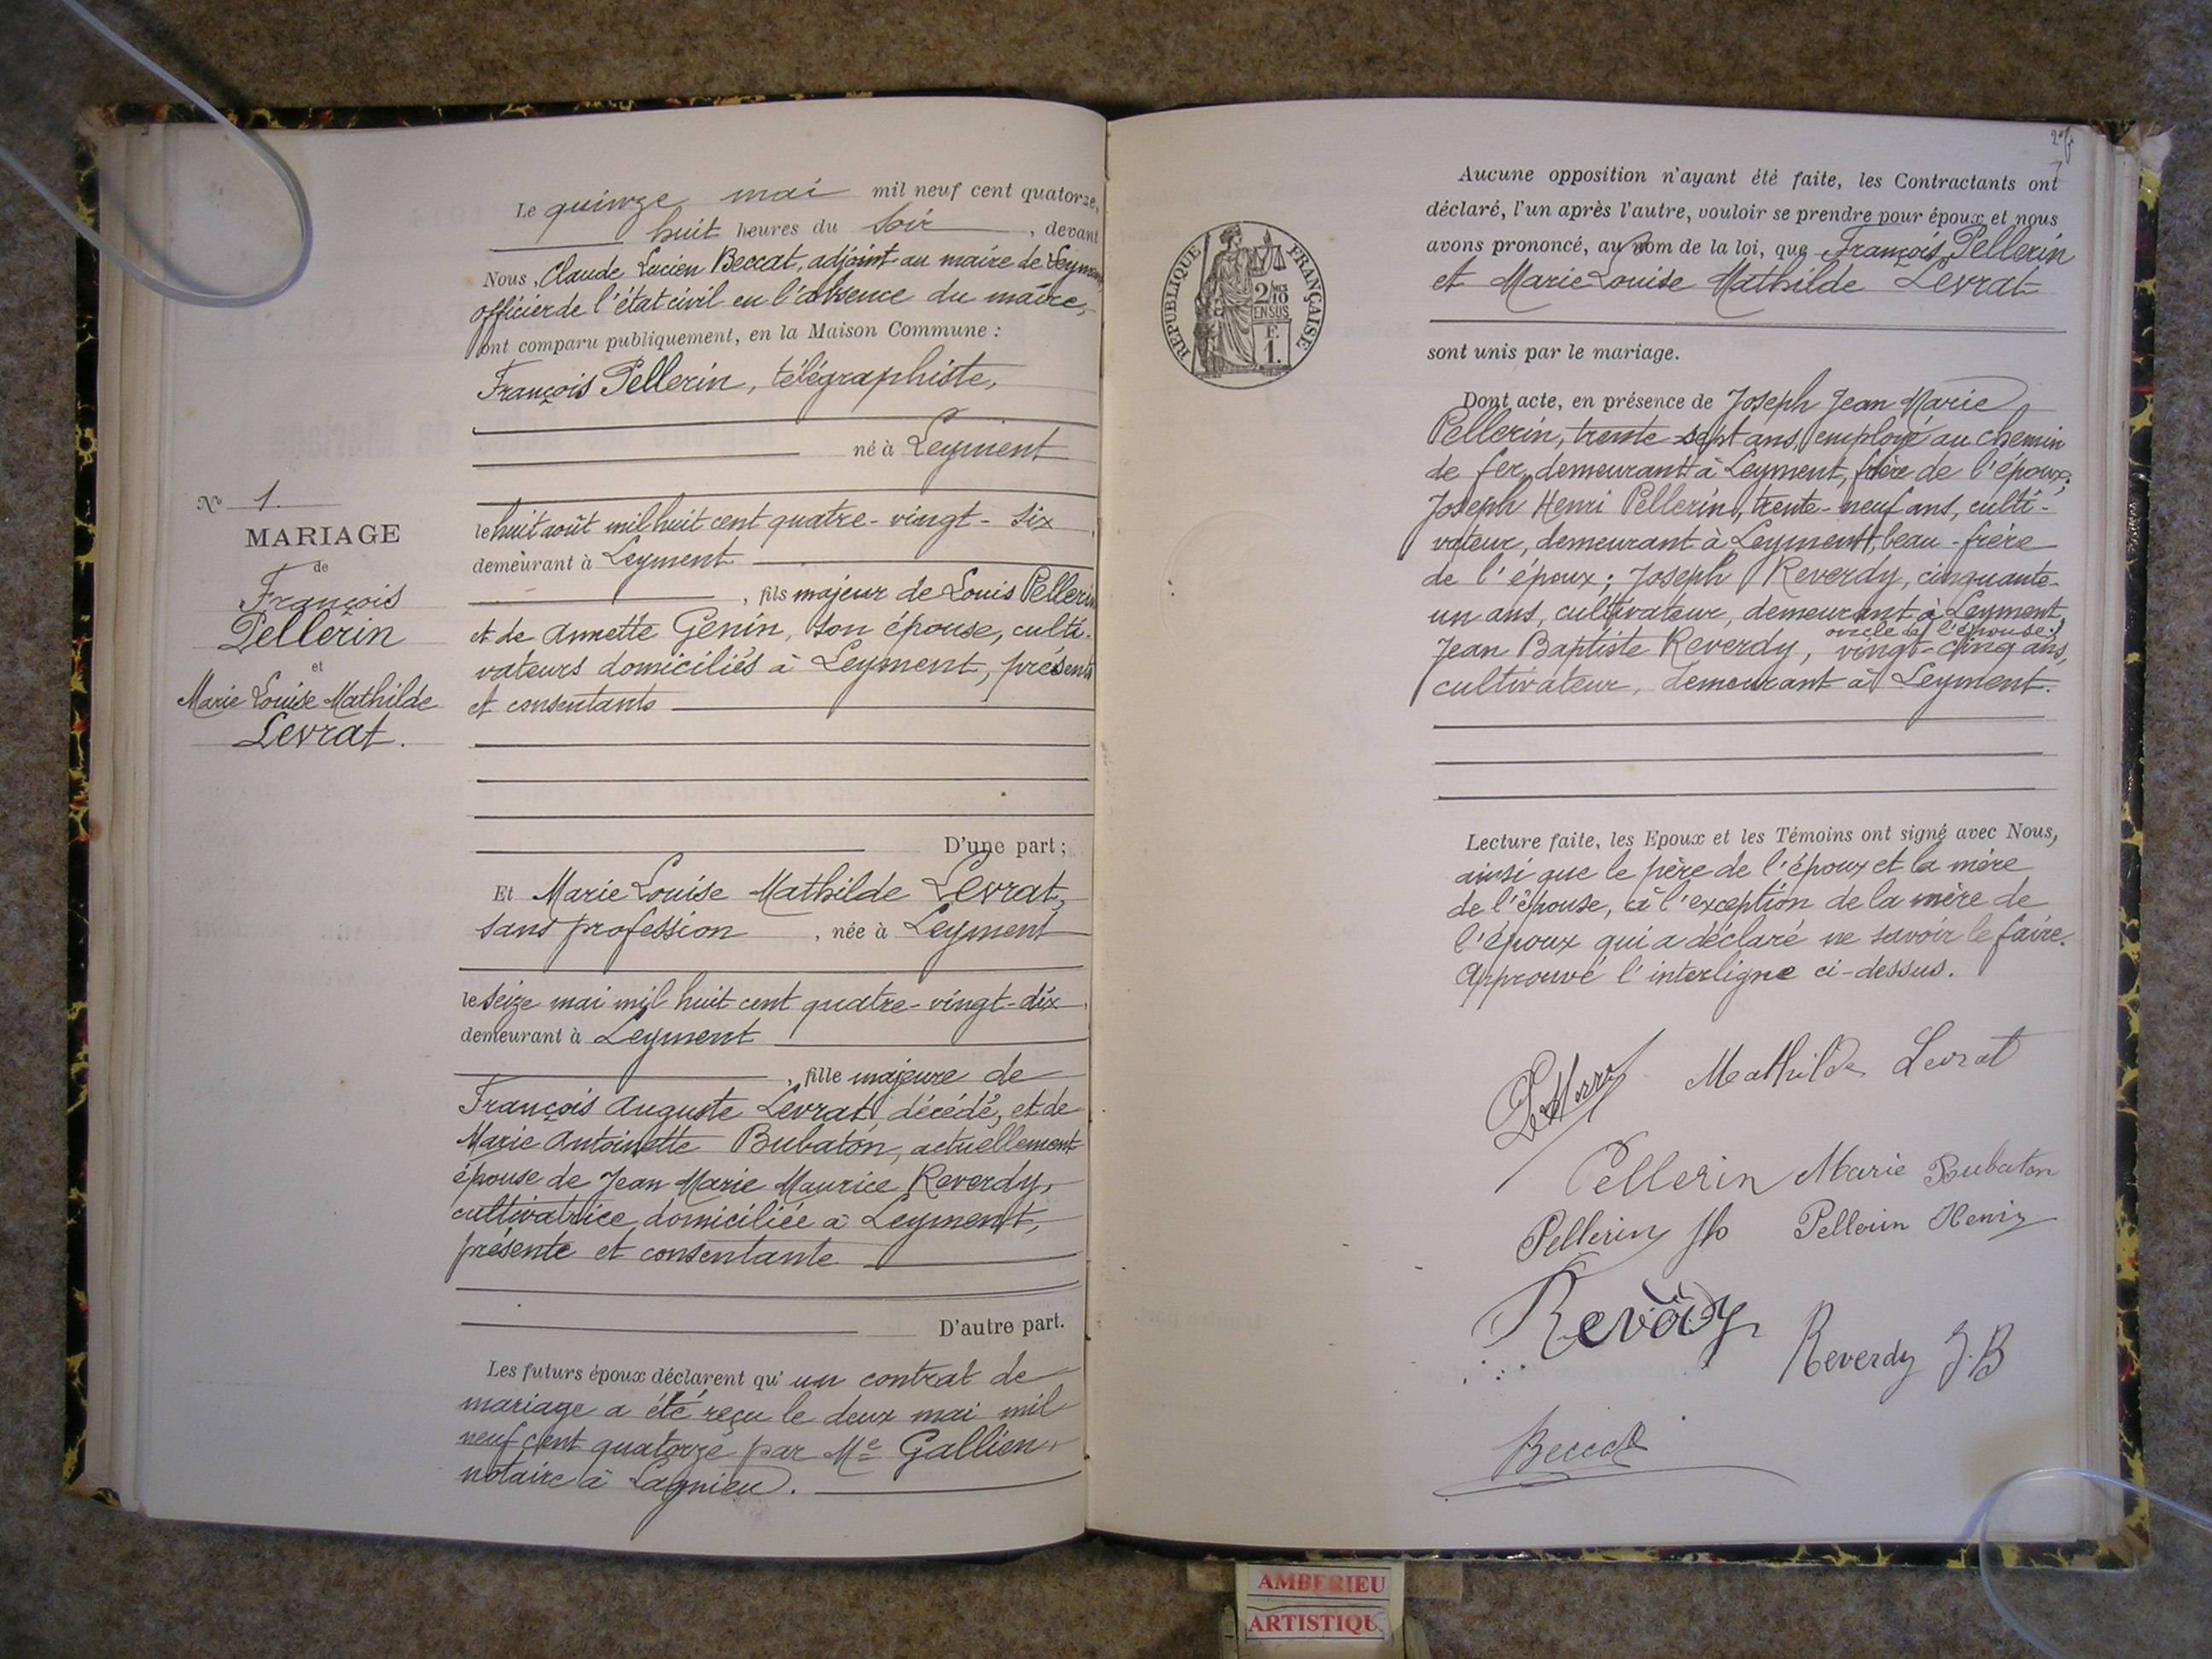 Le quinze mai mil neuf cent quatorze,
huit heures du soir, devant
Nous, Claude Lucien Beccat, adjoint au maire de Leyment
officier de l'état civil en l'absence du maire,
ont comparu publiquement, en la Maison Commune :
François Pellerin, télégraphiste,
né à Leyment
le huit août mil huit cent quatre-vingt-six,
demeurant à Leyment
, fils majeur de Louis Pellerin
et de Annette Genin, son épouse, culti-
vateurs domiciliés à Leyment, présents
et consentants
D'une part ;
Et Marie Louise Mathilde Levrat,
sans profession, née à Leyment
le seize mai mil huit cent quatre-vingt-dix,
demeurant à Leyment
, fille majeure de
François Auguste Levrat, décédé, et de
Marie Antoinette Bubaton, actuellement
épouse de Jean Marie Maurice Reverdy,
cultivatrice domiciliée à Leyment,
présente et consentante
D'autre part.
Les futurs époux déclarent qu'un contrat de
mariage a été reçu le deux mai mil
neuf cent quatorze par Me Gallien,
notaire à Lagnieu.
No 1.
MARIAGE
de
François
Pellerin
et
Marie Louise Mathilde
Levrat.
RÉPUBLIQUE FRANÇAISE
2/10
EN SUS
F.
1.
Aucune opposition n'ayant été faite, les Contractants ont
déclaré, l'un après l'autre, vouloir se prendre pour époux et nous
avons prononcé, au nom de la loi, que François Pellerin
et Marie Louise Mathilde Levrat
sont unis par le mariage.
Dont acte, en présence de Joseph Jean Marie
Pellerin, trente sept ans, employé au chemin
de fer, demeurant à Leyment, frère de l'époux;
Joseph Henri Pellerin, trente-neuf ans, culti-
vateur, demeurant à Leyment, beau-frère
de l'époux; Joseph Reverdy, cinquante-
un ans, cultivateur, demeurant à Leyment,
oncle de l'épouse;
Jean Baptiste Reverdy, vingt-cinq ans,
cultivateur, demeurant à Leyment.
Lecture faite, les Epoux et les Témoins ont signé avec Nous,
ainsi que le père de l'époux et la mère
de l'épouse, à l'exception de la mère de
l'époux qui a déclaré ne savoir le faire.
Approuvé l'interligne ci-dessus.
Mathilde Levrat
Pellerin Marie Bubaton
Pellerin Pellerin Henri
Reverdy J.B
Beccat
AMBERIEU
ARTISTIQU